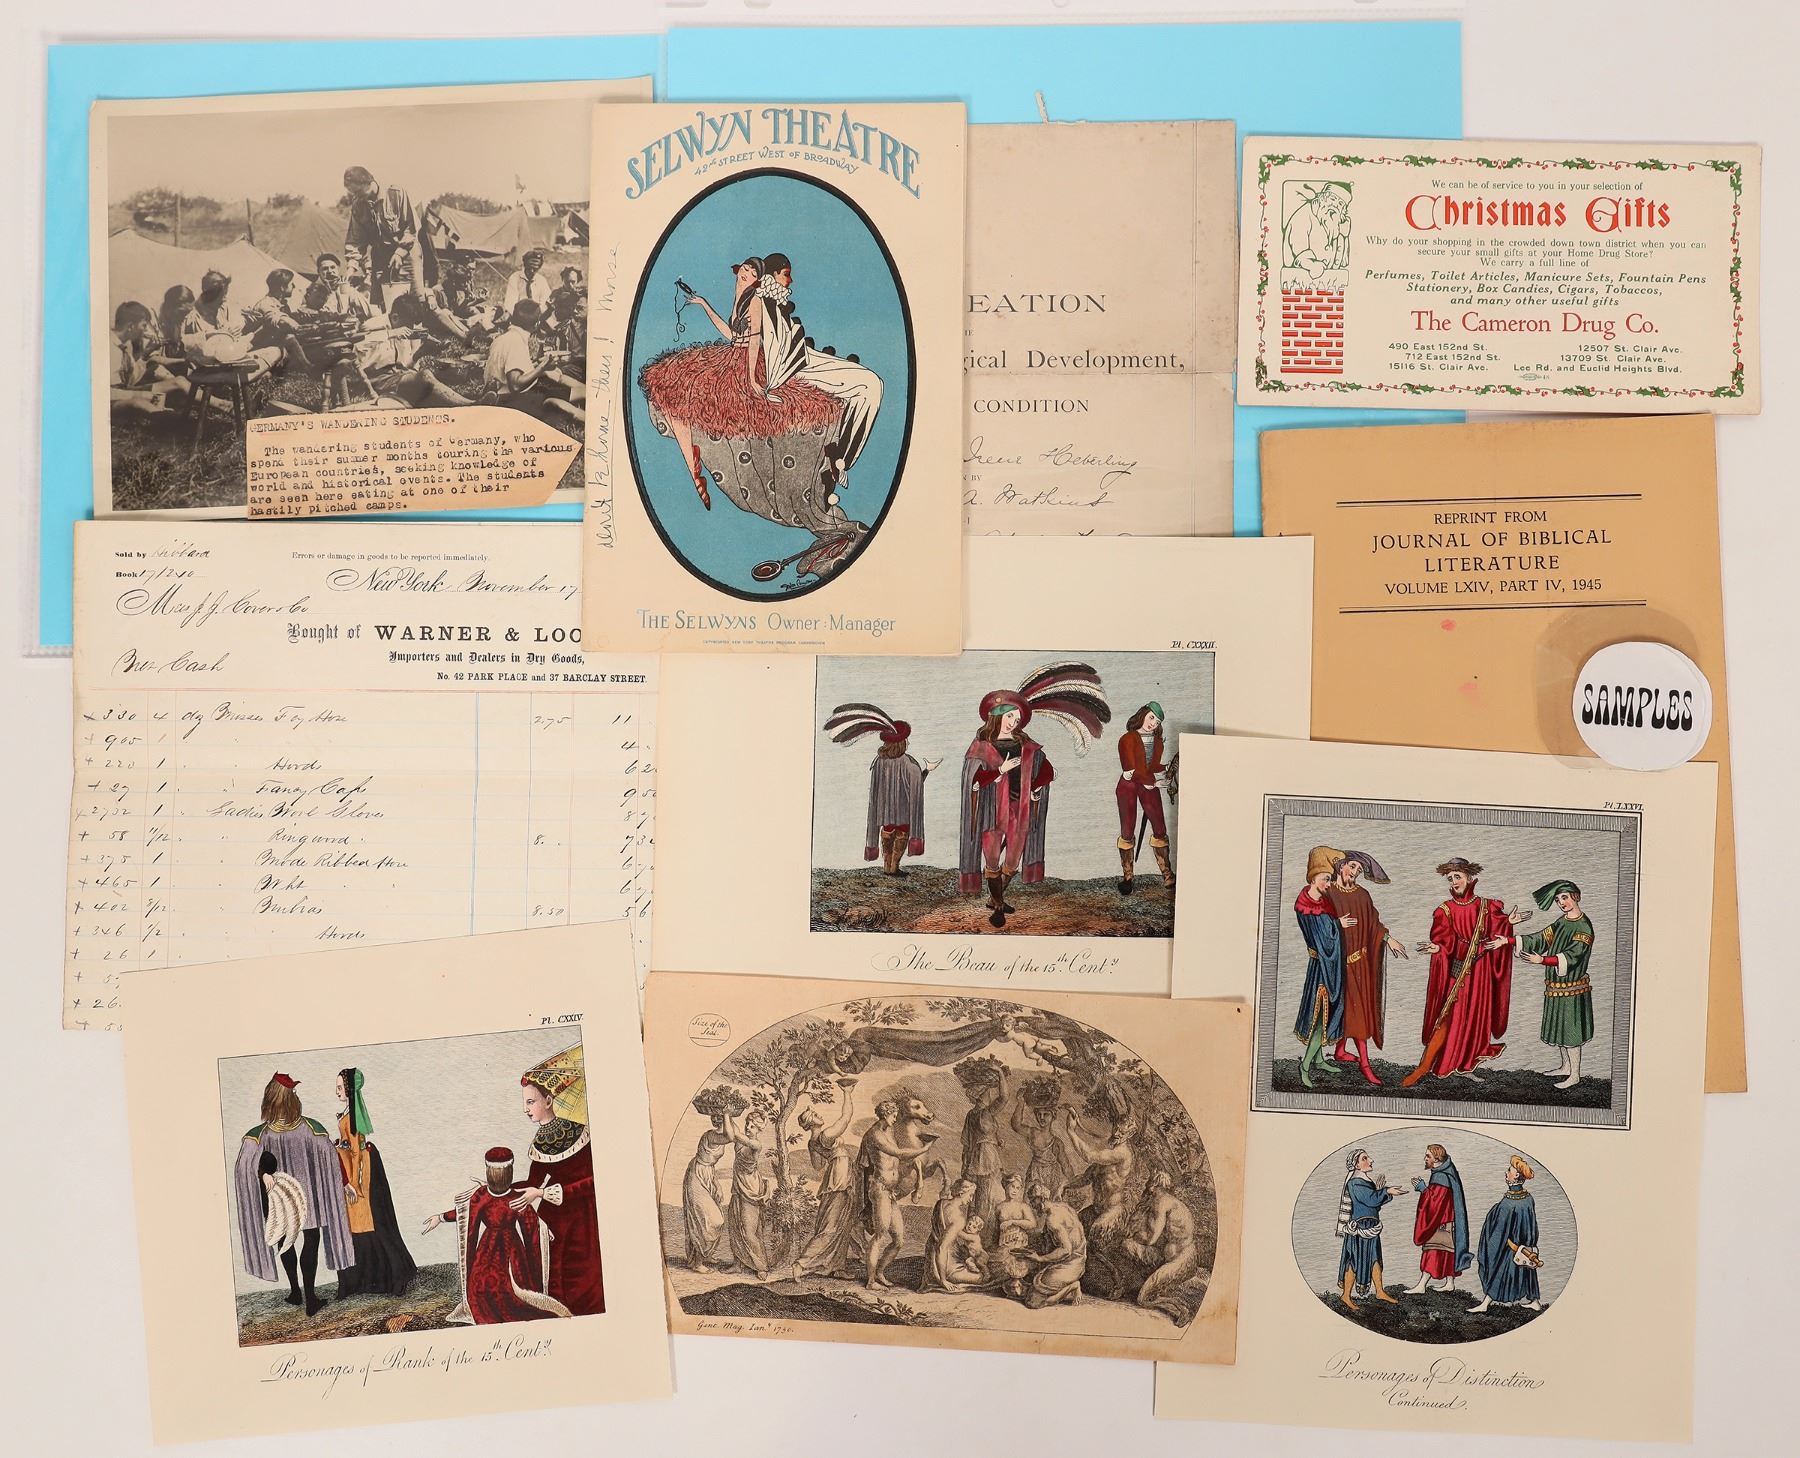 GERMANY'S WANDERING STUDENTS.
The wandering students of Germany, who
spend their summer months touring the various
European countries, seeking knowledge of
world and historical events. The students
are seen here eating at one of their
hastily pitched camps.
SELWYN THEATRE
42nd STREET WEST OF BROADWAY
THE SELWYNS OWNER: MANAGER
EATION
gical Development,
CONDITION
Irene Heberling
A. Watkins
We can be of service to you in your selection of
Christmas Gifts
Why do your shopping in the crowded down town district when you can
secure your small gifts at your Home Drug Store?
We carry a full line of
Perfumes, Toilet Articles, Manicure Sets, Fountain Pens
Stationery, Box Candies, Cigars, Tobaccos,
and many other useful gifts
The Cameron Drug Co.
490 East 152nd St. 12507 St. Clair Ave.
712 East 152nd St. 13709 St. Clair Ave.
15116 St. Clair Ave. Lee Rd. and Euclid Heights Blvd.
REPRINT FROM
JOURNAL OF BIBLICAL
LITERATURE
VOLUME LXIV, PART IV, 1945
SAMPLES
Sold by Hibbard Errors or damage in goods to be reported immediately.
Book 17/240 New York, November 17
Bought of WARNER & LOO
Importers and Dealers in Dry Goods,
No. 42 PARK PLACE and 37 BARCLAY STREET.
Cash
330 4 dz Misses Fcy Hose 2.75 11
905 1 4
220 1 Hoods 6
27 1 Fancy Caps 9 50
2732 1 Ladies Wool Gloves 8
58 11/12 Ringwood 8. 7
375 1 Mode Ribbed Hose 6
465 1 Wht 6
402 8/12 8.50 5 6
346 1/2 Hoods
26 1
Pl. CXXXII.
The Beau of the 15th Centy
Pl. LXXVI.
Personages of Distinction
Continued.
Pl. CXXIV.
Personages of Rank of the 15th Centy
Size of the
Seal.
Gent. Mag. Jany 1790.